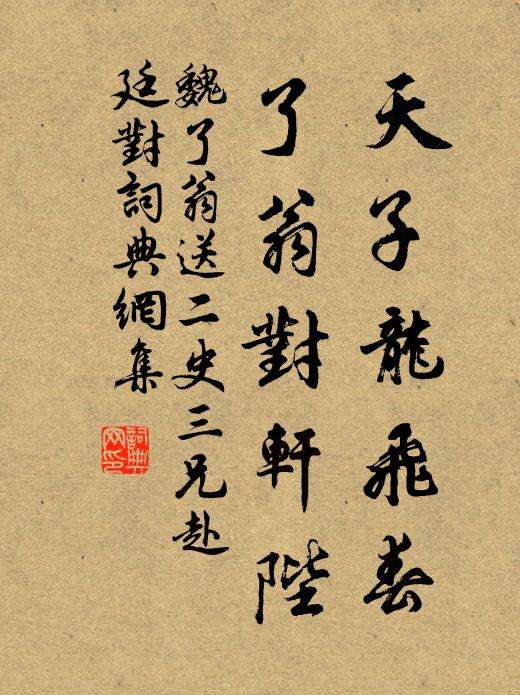 天子龍飛春
了翁對軒陛
魏了翁送二史三兄赴
廷對詞典網集
詞典
网印